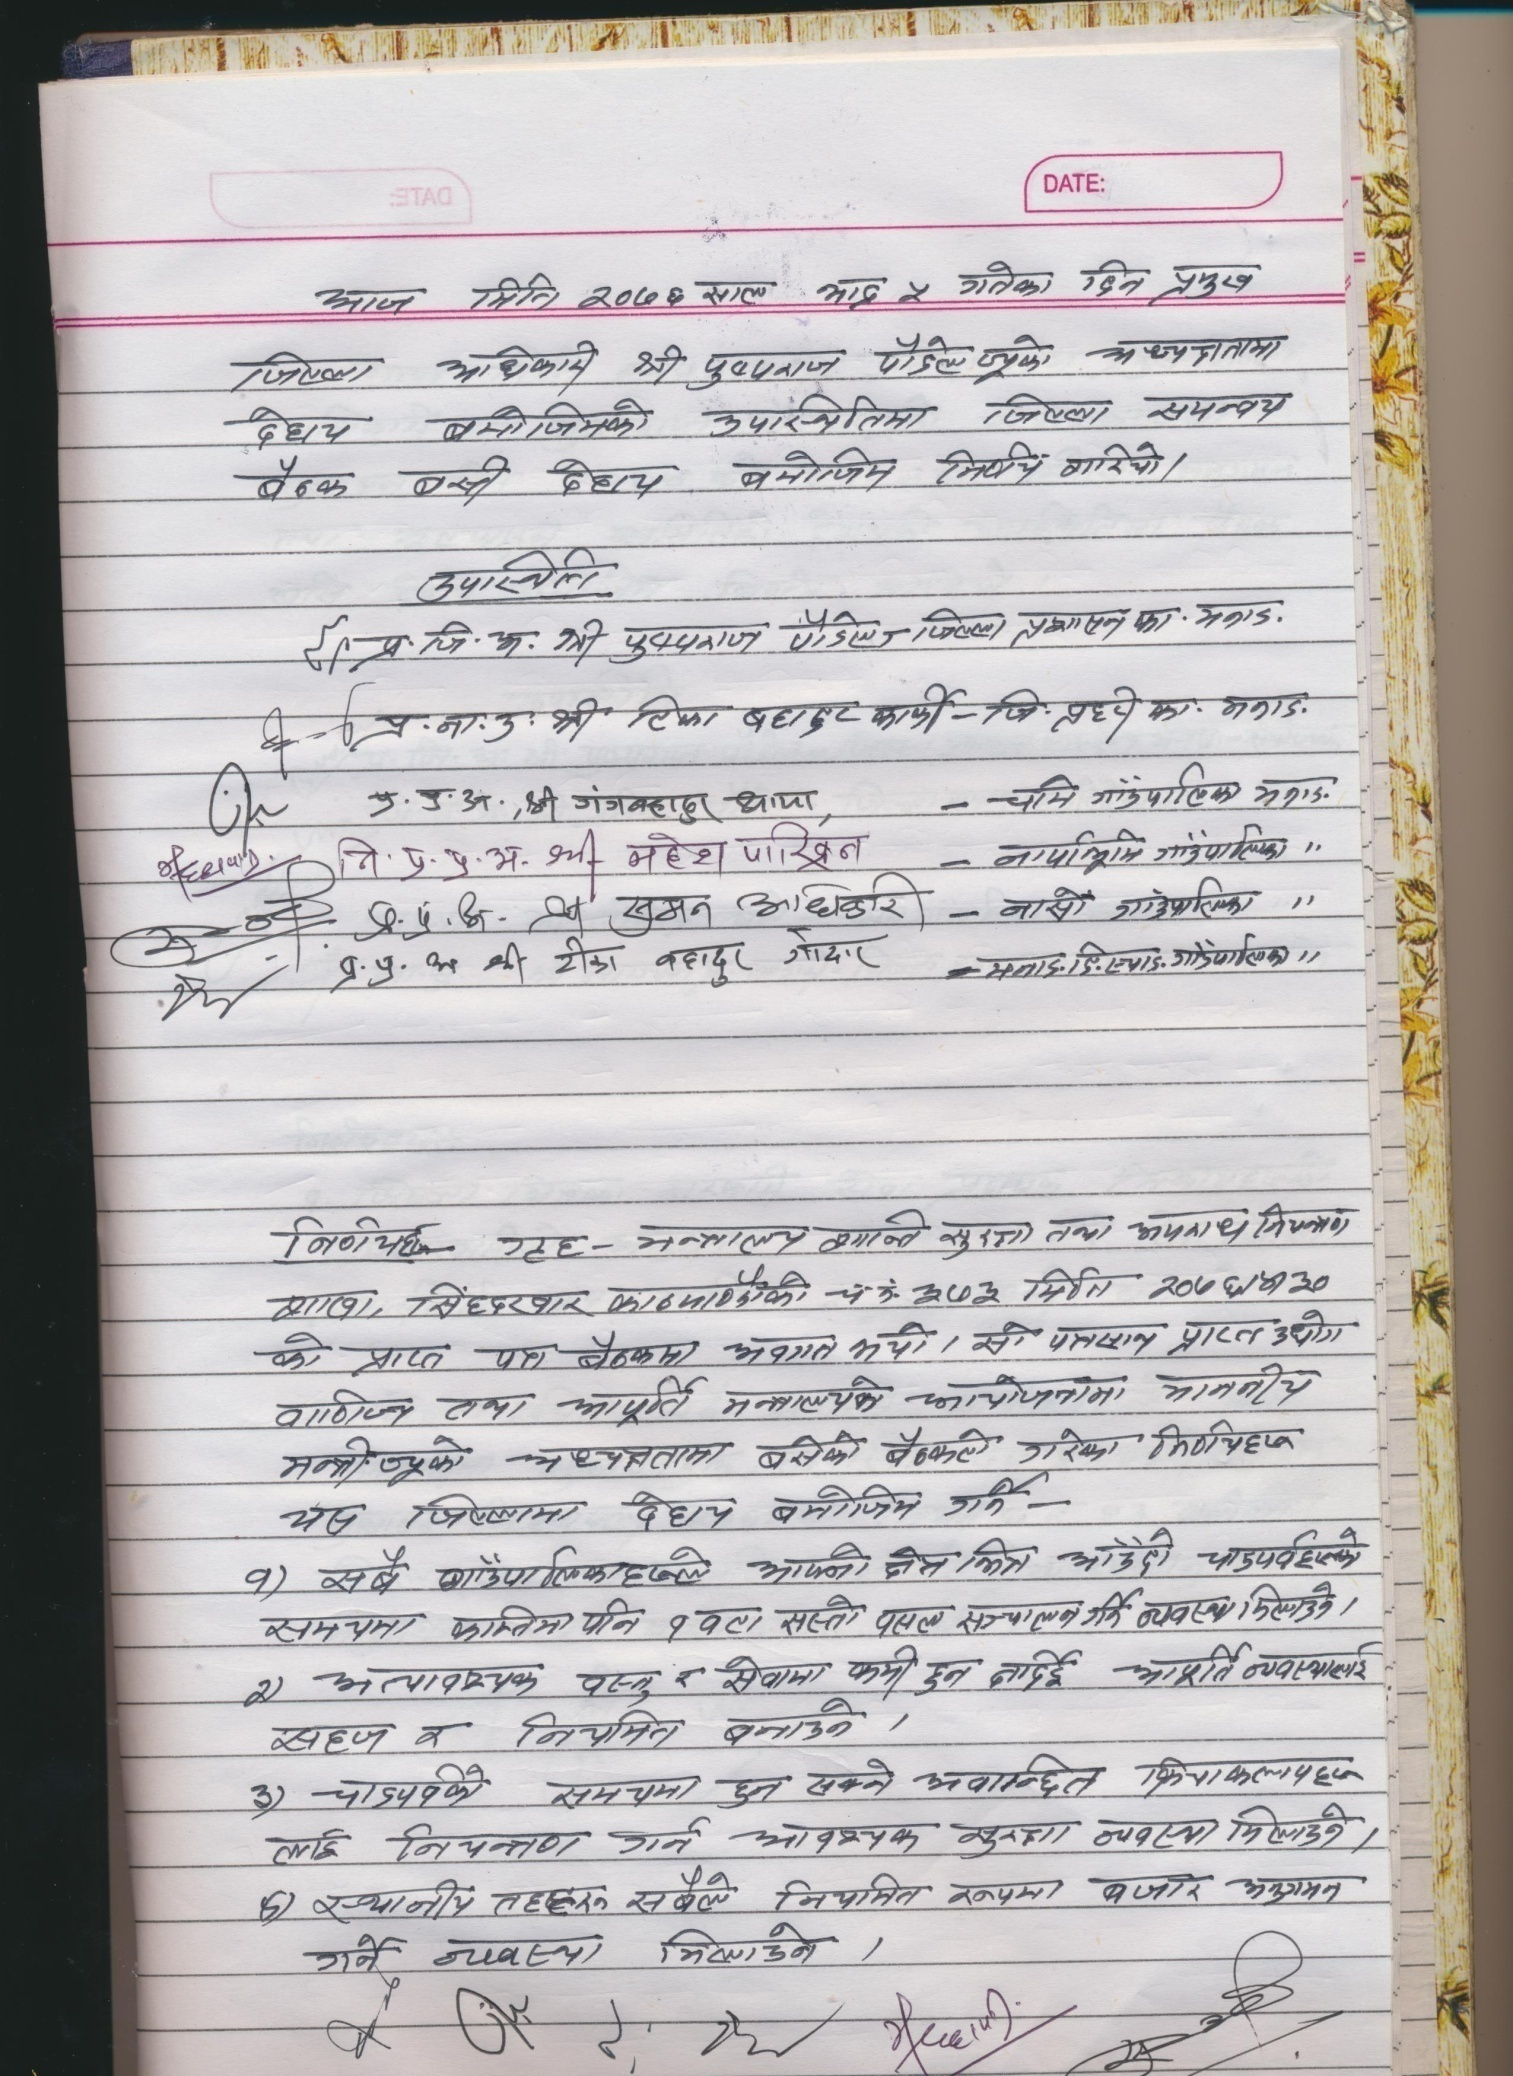 DATE:
आज मिति २०७६ साल भाद्र ५ गतेका दिन प्रमुख
जिल्ला अधिकारी श्री पुण्यराज पौडेल ज्यूको अध्यक्षतामा
देहाय बमोजिमको उपस्थितिमा जिल्ला समन्वय
बैठक बसी देहाय बमोजिम निर्णय गरियो।
उपस्थिति
प्र. जि. अ. श्री पुण्यराज पौडेल जिल्ला प्रशासन का. मनाङ.
प्र. ना. उ. श्री टिका बहादुर कार्की – जि. प्रहरी का. मनाङ.
प्र. प्र. अ. श्री गंगबहादुर थापा, – चामे गाउँपालिका मनाङ.
नि. प्र. प्र. अ. श्री महेश पारिश्रन – नार्पाभूमि गाउँपालिका "
प्र. प्र. अ. श्री सुमन अधिकारी – नासोँ गाउँपालिका "
प्र. प्र. अ श्री टीका बहादुर – मनाङ. ङिस्याङ. गाउँपालिका "
निर्णयहरू गृह – मन्त्रालय शान्ति सुरक्षा तथा अपराध नियन्त्रण
शाखा, सिंहदरबार काठमाडौँको च. नं. ३७३ मिति
को प्राप्त पत्र बैठकमा अवगत भयो। सो पत्रसाथ प्राप्त उद्योग
वाणिज्य तथा आपूर्ति मन्त्रालयको आयोजनामा माननीय
मन्त्री ज्यूको अध्यक्षतामा बसेको बैठकले गरेका निर्णयहरू
यस जिल्लामा देहाय बमोजिम गर्ने –
१) सबै गाउँपालिकाहरूले आफ्नो क्षेत्र भित्र आउँदो चाडपर्वहरूको
समयमा कम्तिमा पनि १ वटा सस्तो पसल सञ्चालन गर्ने व्यवस्था मिलाउने।
२) अत्यावश्यक वस्तु र सेवामा कमी हुन नदिई आपूर्ति व्यवस्थालाई
सहज र नियमित बनाउने ।
३) चाडपर्वको समयमा हुन सक्ने अवाञ्छित क्रियाकलापहरू
लाई नियन्त्रण गर्न आवश्यक सुरक्षा व्यवस्था मिलाउने ।
४) स्थानीय तहहरू सबैले नियमित रूपमा बजार अनुगमन
गर्ने व्यवस्था मिलाउने ।